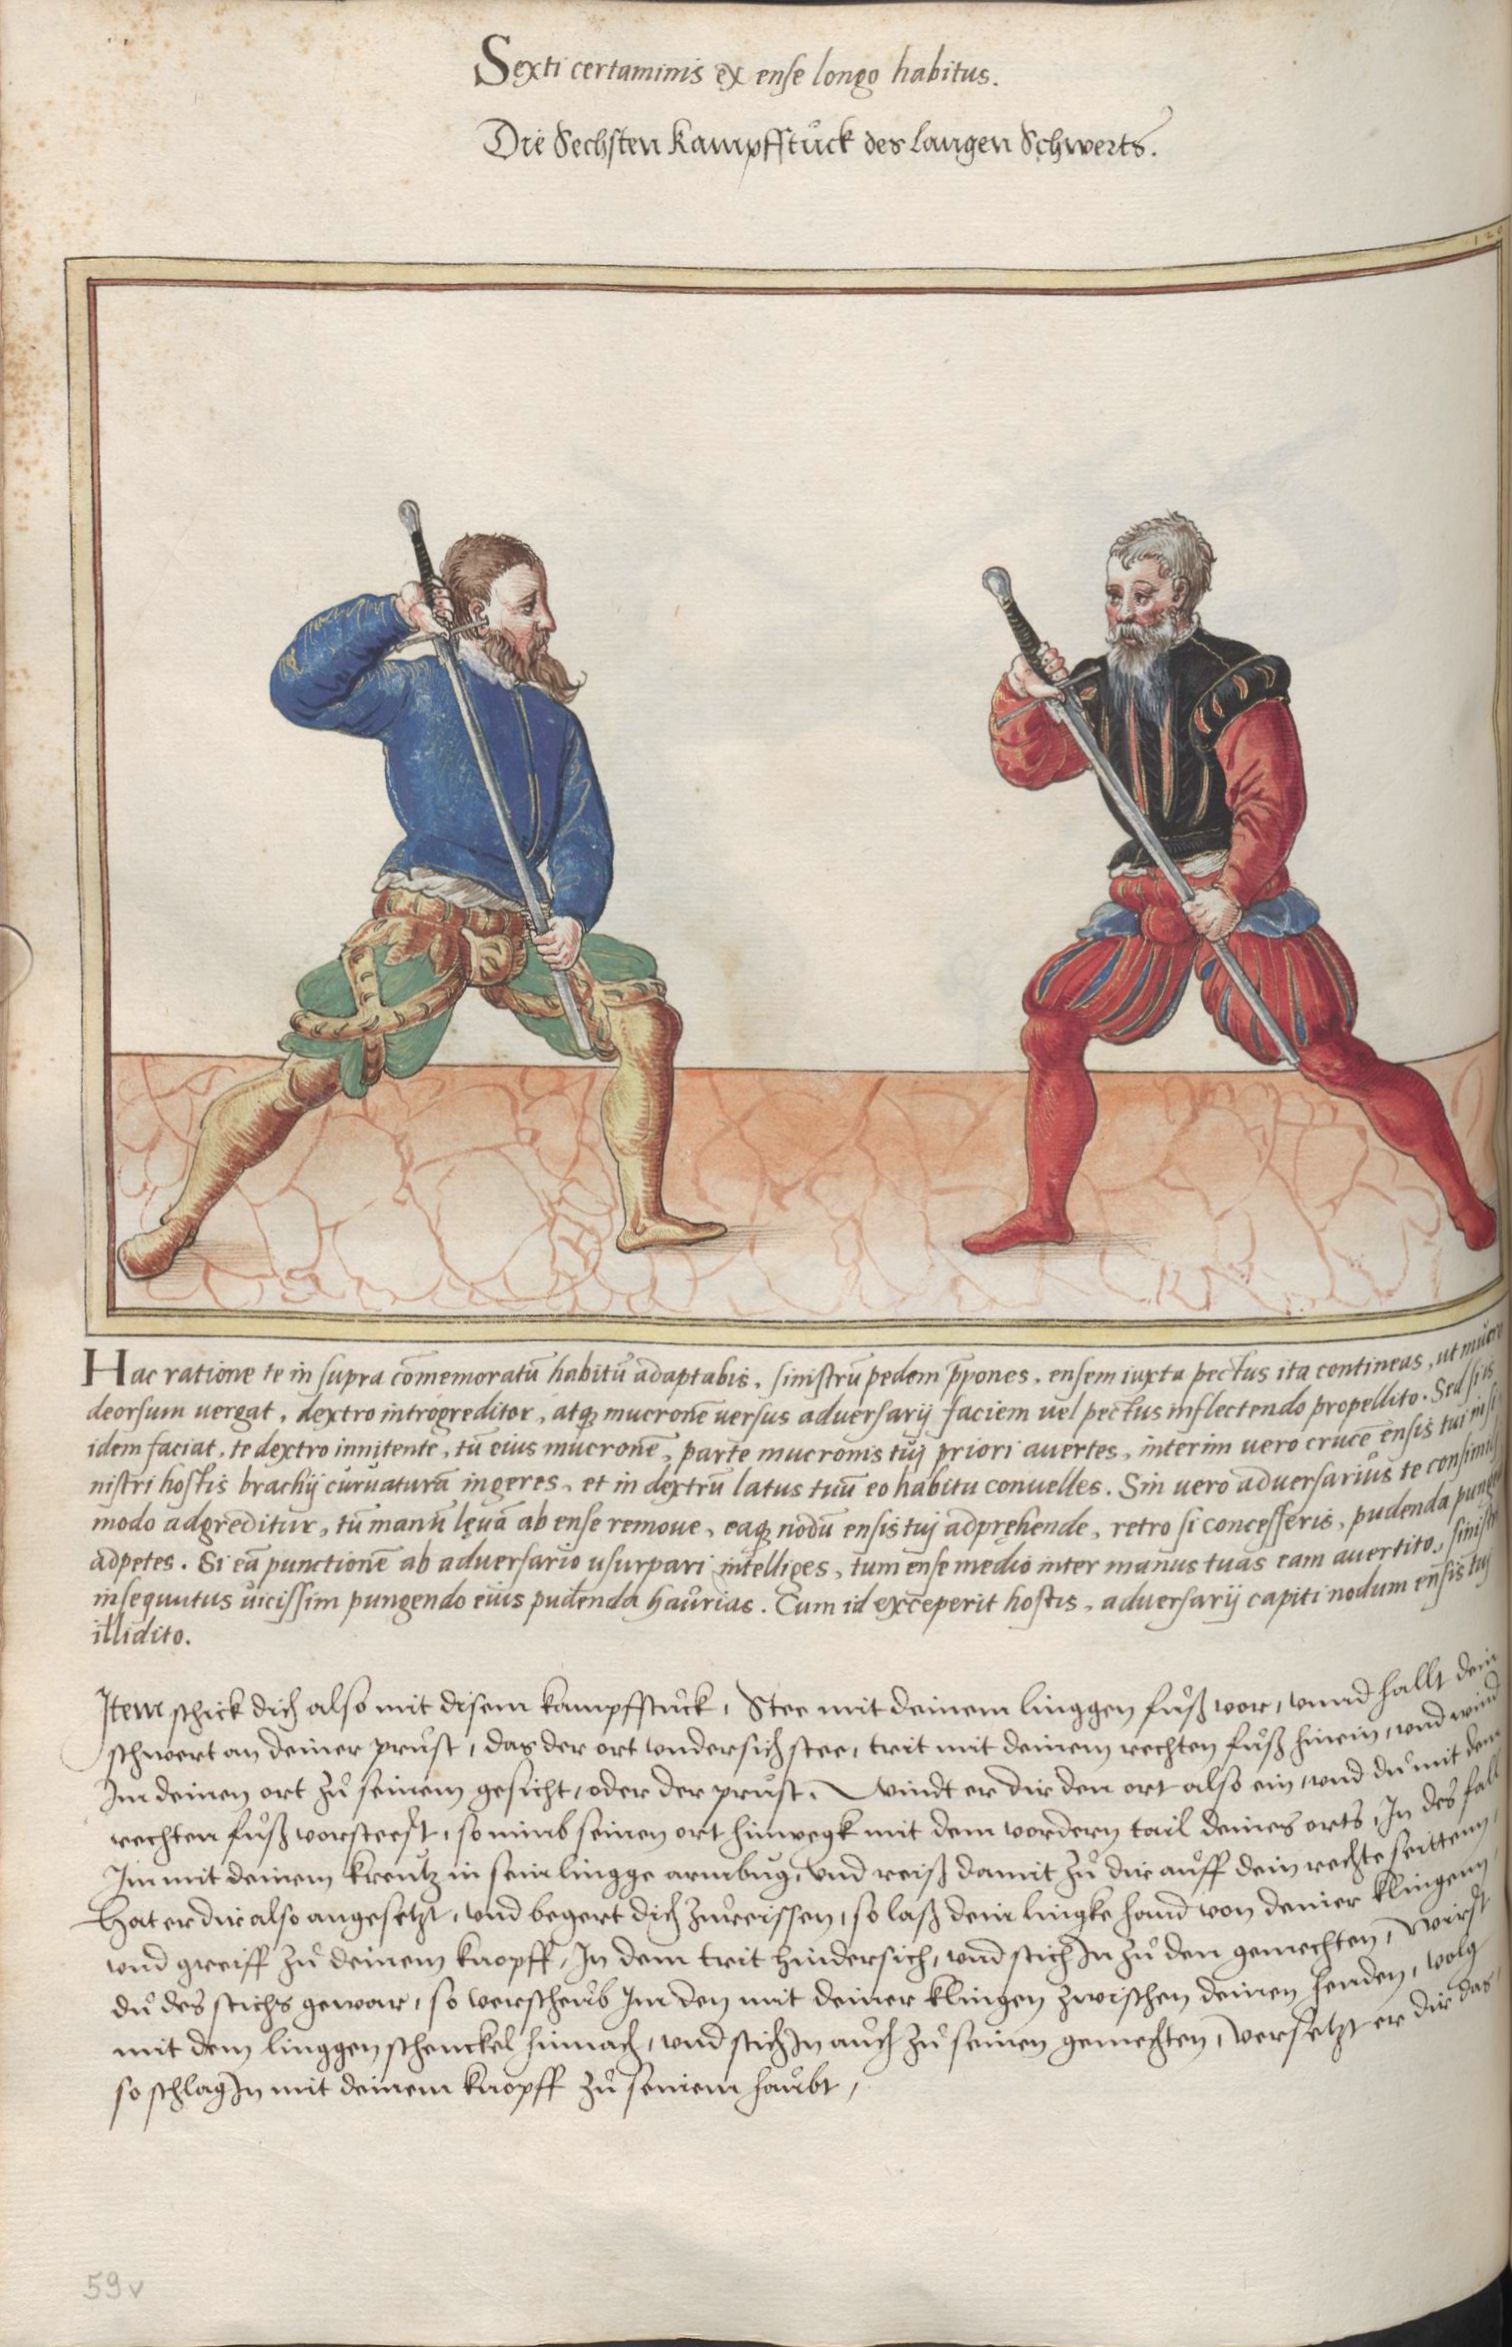 Sexti certaminis ex ense longo habitus.
Die Sechsten Kampfstůck des langen Schwerts.
120
Hac ratione te in supra cōmemoratū habitū adaptabis, sinistrū pedem ꝓpones, ensem iuxta pectus ita contineas, ut mucro
deorsum uergat, dextro introgreditor, atqꝫ mucronē versus aduersarij faciem uel pectus inflectendo propellito. Sed si is
idem faciat, te dextro innitente, tū eius mucronē, parte mucronis tuj priori auertes, interim uero crucē ensis tui in si
nistri hostis brachij curuaturā ingeres, et in dextrū latus tuū eo habitu conuelles. Sin uero aduersarius te consimili
modo adgreditur, tū manū lęuā ab ense remoue, eaqꝫ nodū ensis tuj adpręhende, retro si concesseris, pudenda pungendo
adpetes. Si eā punctionē ab aduersario usurpari intelliges, tum ense medio inter manus tuas eam auertito, sinistro
insequutus uicissim pungendo eius pudenda haurias. Cum id exceperit hostis, aduersarij capiti nodum ensis tuj
illidito.
Item schick dich also mit disem kampfstůck, Stee mit deinem linggen fůß vor, vnnd hallt dein
schwert an deiner průst, das der ort vndersich stee, trit mit deinem rechten fůß hinein, vnd wind
Im deinen ort zů seinem gesicht, oder der průst. Windt er dir den ort also ein, vnd dů mit dem
rechten fůß vorsteest, so nimb seinen ort hinwegk mit dem vordern tail deines orts, In des fall
Im mit deinem kreůtz in sein lingge armbůg, vnd reiß damit zů dir aůff dein rechte seitten,
Hat er dir also angesetzt, vnd begert dich zůreissen, so laß dein lingke hand von deiner klingen,
vnd greiff zů deinem knopff, In dem trit hindersich, vnd stich In zů den gemechten, Wirst
dů des stichs gewar, so verscheůb Im den mit deiner klingen zwischen deinen henden, volg
mit dem linggen schenckel hinnach, vnd stich In aůch zů seinen gemechten, Versetzt er dir das,
so schlag In mit deinem knopff zů seinem haůbt,
59v